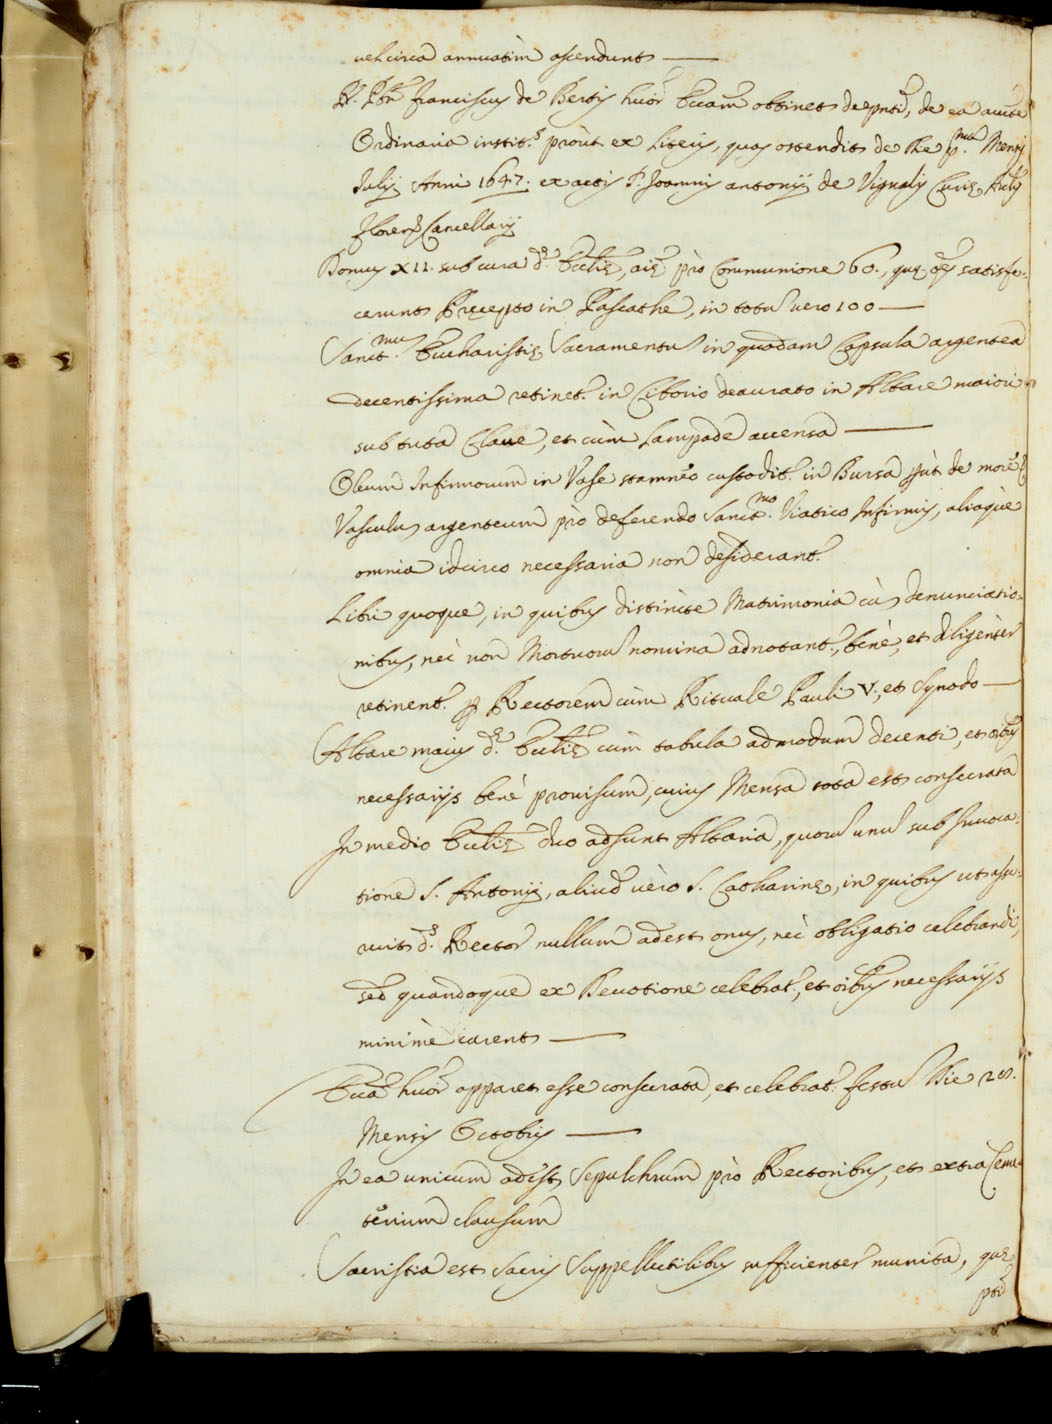 vel circa annuatim ascendunt
R. Pbr Franciscus de Bertis huiõ Eccam obtinet de pnti, de ea aucte
Ordinaria instit.s proùt ex Literis, quas ostendit de die p.ma Mensis
Julij Anni 1647. ex actis P. Joannis antonij de Vignalis Curię
Floren. Cancellarij
Domus XII. sub cura d.ę Ecclię, aię prò Communione 60., quę oẽs satisfe-
cerunt Precepto in Pascathe, in totu vero 100
Sanct.mu Eucharistię Sacramentu in quadam Capsula argentea
decentissima retinet. in Ciborio deaurato in Altare maiori
sub tuta Claue, et cùm Lampade accensa
Oleum Infirmorum in Vase stamneo custodit. in Bursa put de more
Vasculus argenteum prò deferendo Sanct.mo Viatico Infirmis, aliaquè
omnia idcirco necessaria non desiderant.
Libri quoque, in quibus distinùte Matrimonia cù denunciatio-
nibus, nec non Mortuoru nomina adnotant., benè, et diligentèr
retinent. p Rectorem cùm Rituale Pauli V., et Synodo
Altare maius d.ę Ecclię cùm tabula admodum decenti, et oibus
necessarijs benè prouisum, cuius Mensa tota est consecrata
In medio Ecclię duo adsunt Altaria, quoru unu sub Inuoca-
tione S. Antonij, aliud vèro S. Catharinę, in quibus ut asse-
ruit d.s Rector nullum adest onus, nec obligatio celebrandi,
sed quandoque ex Deuotione celebrat., et oibus necessarijs
minimè carent
Ecca huiõ apparet esse consecrata, et celebrat. festu Die 28.
Mensis Octobris
In ea unicum adest Sepulchrum prò Rectoribus, et extra Ceme-
terium clausum
Sacristia est Sacris Suppellectilibus sufficienter munita, quę
pti